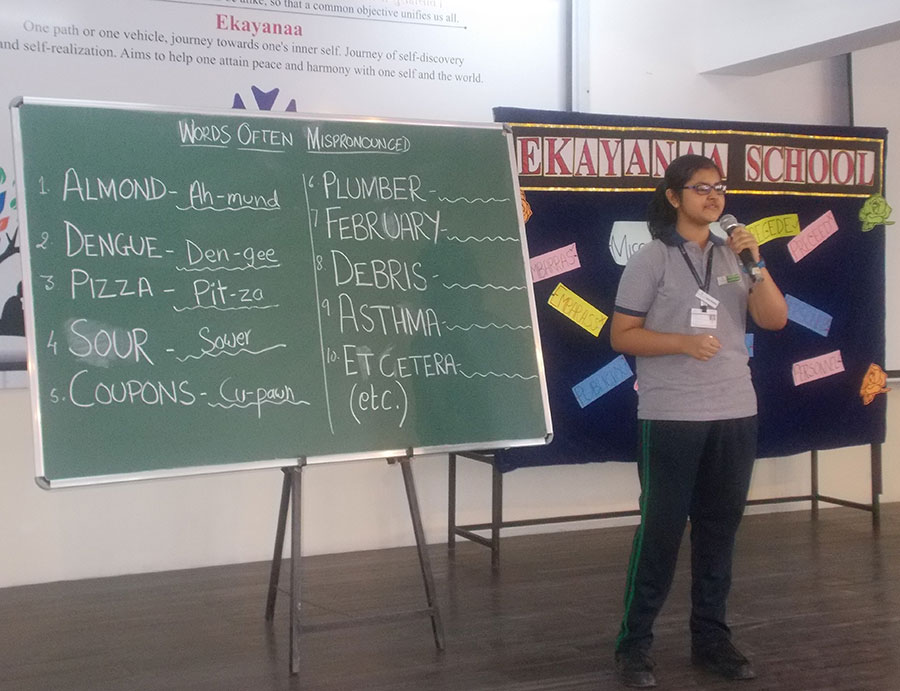 alike, so that a common objective unifies us all.
Ekayanaa
One path or one vehicle, journey towards one's inner self. Journey of self-discovery
and self-realization. Aims to help one attain peace and harmony with one self and the world.
WORDS OFTEN MISPRONOUNCED
1. ALMOND- Ah-mund
2. DENGUE- Den-gee
3. PIZZA - Pit-za
4. SOUR - Sower
5. COUPONS- Cu-pawn
6. PLUMBER-
7. FEBRUARY-
8. DEBRIS-
9. ASTHMA-
10. ET CETERA-
(etc.)
EKAYANAA SCHOOL